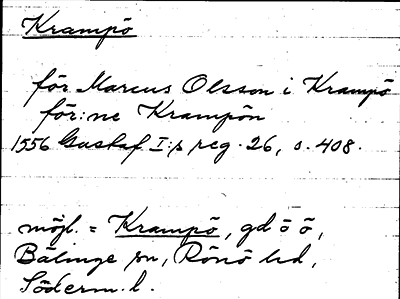 Krampö
för Marcus Olsson i Krampö
för:ne Krampön
1556 Gustaf I:s reg. 26, s. 408.
möjl. = Krampö, gd o ö,
Bälinge sn, Rönö hd,
Söderm. l.